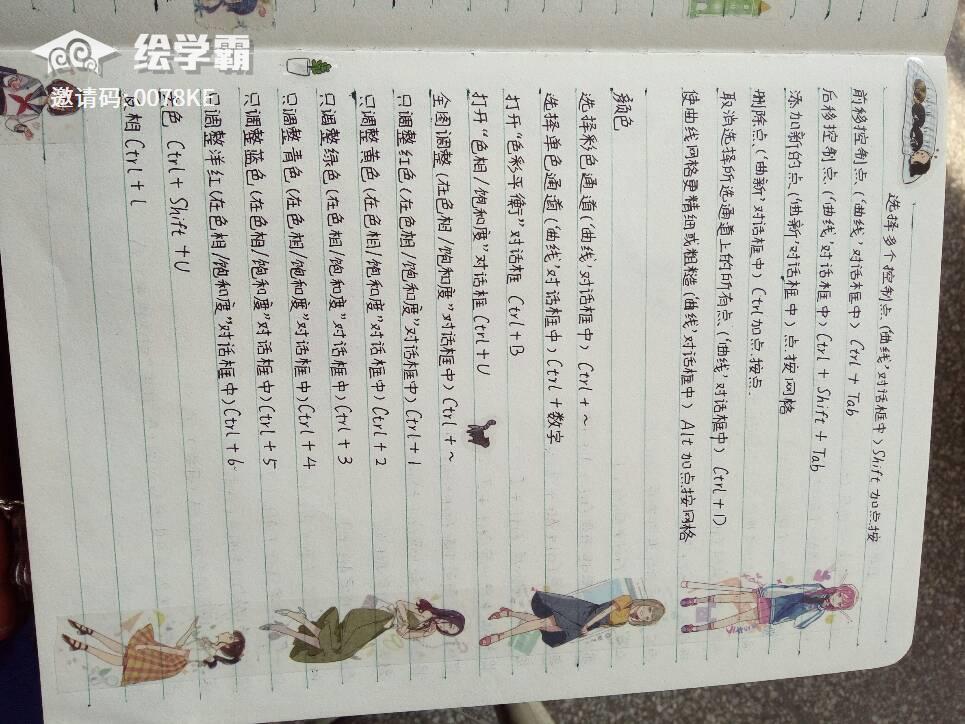 绘学霸
邀请码:0078KE
选择多个控制点('曲线'对话框中)Shift 加点按
前移控制点('曲线'对话框中) Ctrl + Tab
后移控制点('曲线'对话框中)Ctrl + Shift + Tab
添加新的点('曲新'对话框中)点按网格
删除点('曲新'对话框中)Ctrl加点按点.
取消选择所选通道上的所有点('曲线'对话框中) Ctrl + D
使曲线网格更精细或粗糙('曲线'对话框中) Alt 加点按网格
颜色
选择彩色通道('曲线'对话框中) Ctrl + ~
选择单色通道('曲线'对话框中) Ctrl + 数字
打开“色彩平衡”对话框 Ctrl + B
打开“色相/饱和度”对话框 Ctrl + U
全图调整(在色相/饱和度”对话框中) Ctrl + ~
只调整红色(在色相/饱和度”对话框中) Ctrl + 1
只调整黄色(在色相/饱和度”对话框中) Ctrl + 2
只调整绿色(在色相/饱和度”对话框中) Ctrl + 3
只调整青色(在色相/饱和度”对话框中) Ctrl + 4
只调整蓝色(在色相/饱和度”对话框中) Ctrl + 5
只调整洋红(在色相/饱和度”对话框中) Ctrl + 6
色 Ctrl + Shift + U
相 Ctrl + l